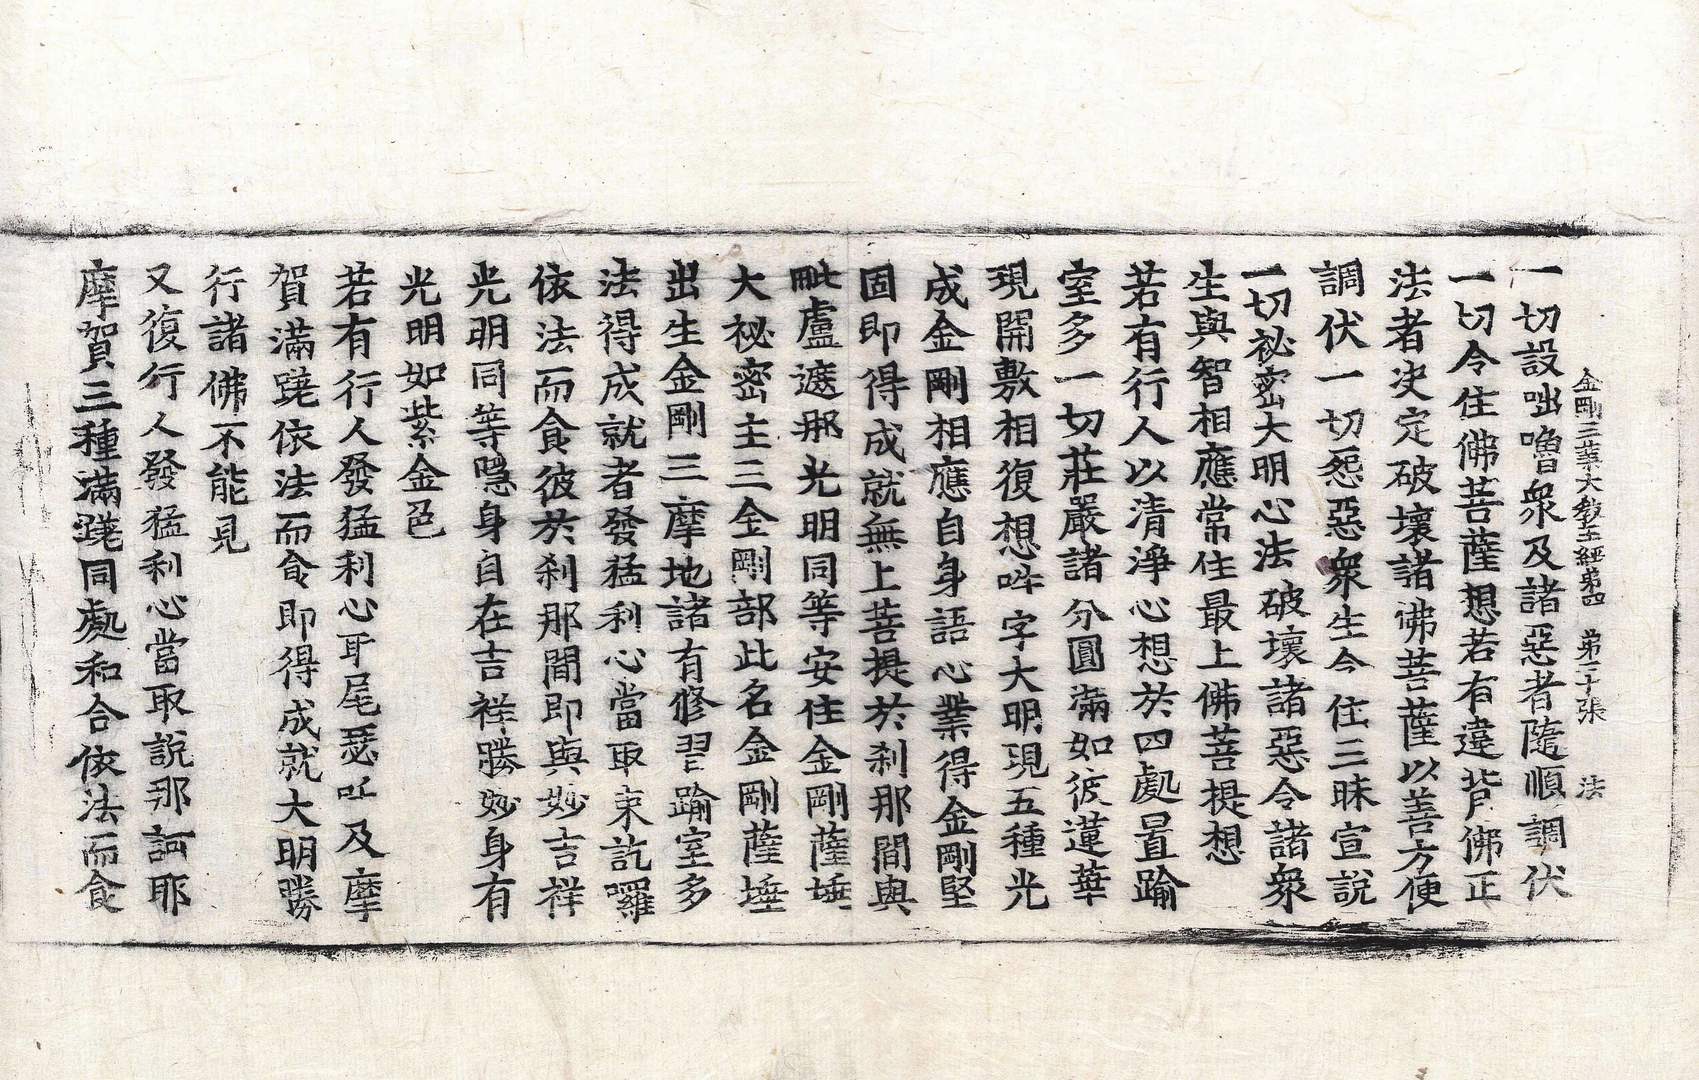 金剛三業大教王經第四 第二十張 法
一切設咄嚕衆及諸惡者隨順調伏
一切令住佛菩薩想若有違背佛正
法者决定破壞諸佛菩薩以善方便
調伏一切怨惡衆生令住三昧宣說
一切祕密大明心法破壞諸惡令諸衆
生與智相應常住最上佛菩提想
若有行人以清淨心想於四處置踰
室多一切莊嚴諸分圓滿如彼蓮華
現開敷相復想吽字大明現五種光
成金剛相應自身語心業得金剛堅
固即得成就無上菩提於刹那間與
毗盧遮那光明同等安住金剛薩埵
大祕密主三金剛部此名金剛薩埵
出生金剛三摩地諸有修習踰室多
法得成就者發猛利心當取束訖囉
依法而食彼於刹那間即與妙吉祥
光明同等隱身自在吉祥勝妙身有
光明如紫金色
若有行人發猛利心耳尾瑟吒及摩
賀滿蹺依法而食即得成就大明勝
行諸佛不能見
又復行人發猛利心當取說那訶耶
摩賀三種滿蹺同處和合依法而食